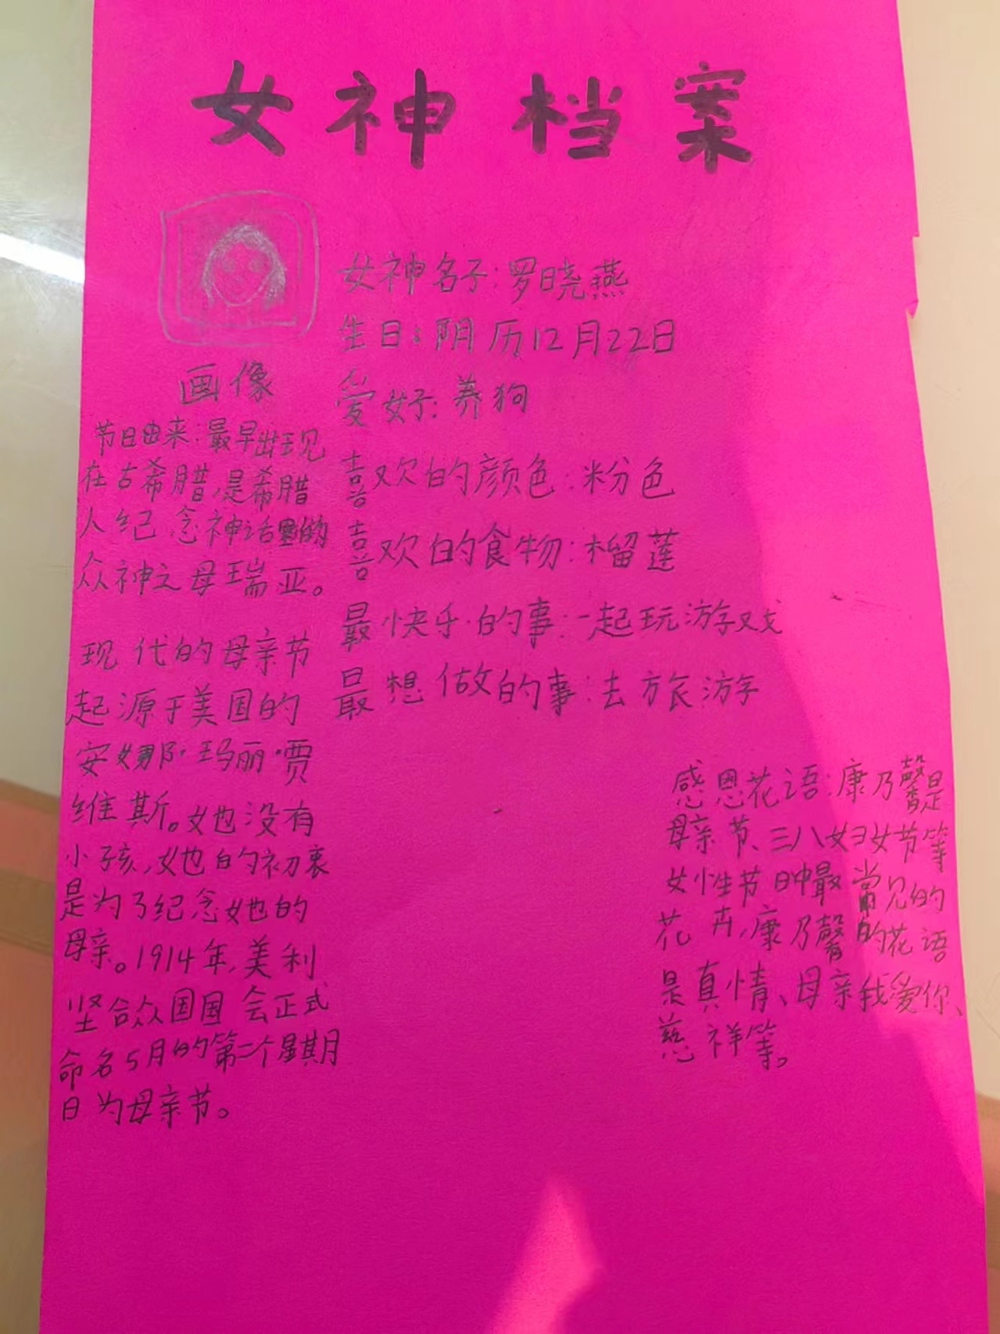 女神档案
女神名子:罗晓燕
生日:阴历12月22日
爱好:养狗
喜欢的颜色:粉色
喜欢的食物:榴莲
最快乐的事:一起玩游戏
最想做的事:去旅游
画像
节日由来:最早出现
在古希腊,是希腊
人纪念神话里的
众神之母瑞亚。
现代的母亲节
起源于美国的
安娜·玛丽·贾
维斯。她没有
小孩,她的初衷
是为了纪念她的
母亲。1914年,美利
坚合众国国会正式
命名5月的第二个星期
日为母亲节。
感恩花语:康乃馨是
母亲节、三八妇女节等
女性节日中最常见的
花卉,康乃馨的花语
是真情、母亲我爱你、
慈祥等。